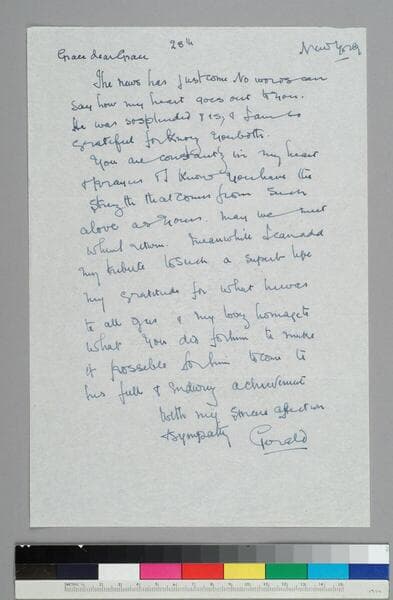 28th
New York
Grace dear Grace
The news has just come No words can
say how my heart goes out to you.
He was so splendid & is, & I am so
grateful for knowing you both.
You are constantly in my heart
& prayers & I know you have the
strength that comes from such
a love as yours. May we meet
when I return. Meanwhile I can add
my tribute to such a superb life
my gratitude for what he was
to all of us & my loving homage to
what you did for him to make
it possible for him to come to
his full & enduring achievement
With my sincere affection
& sympathy Gerald